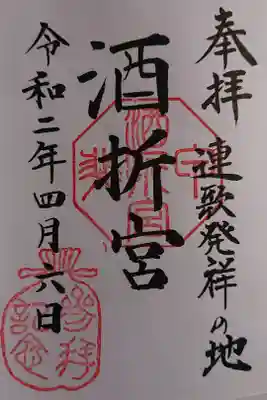 奉拝
連歌発祥の地
酒折宮
令和二年四月六日